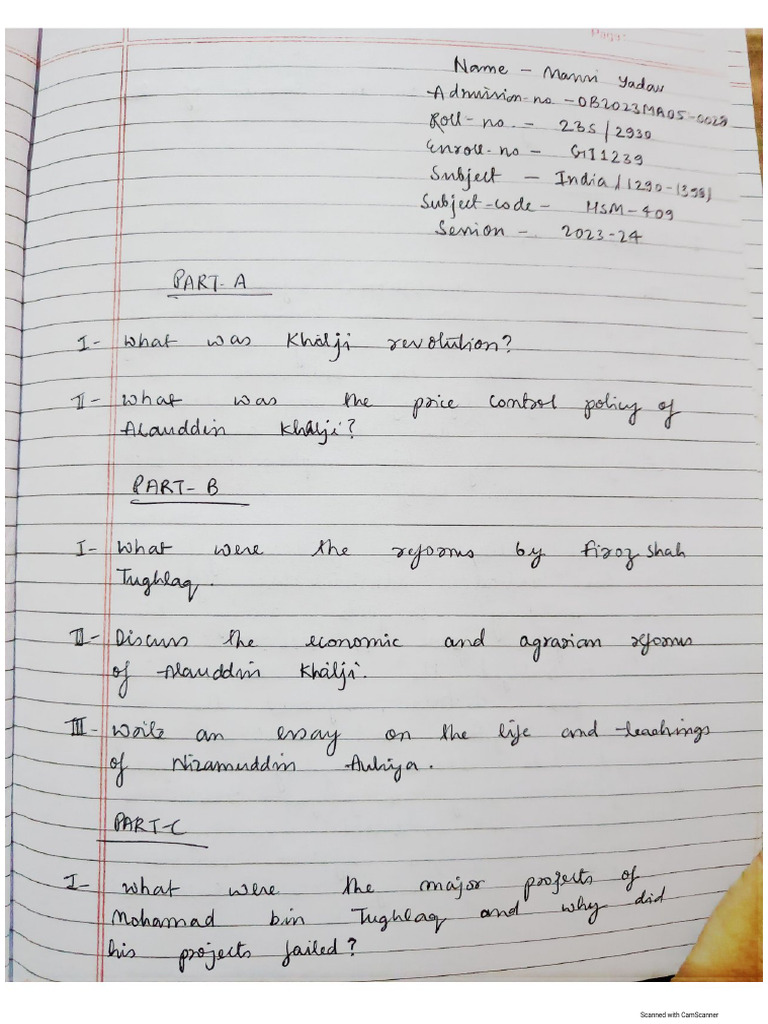 Page:
Name - Manvi Yadav
Admission-no - OB2023MA05-0029
Roll-no. - 235/2930
Enroll-no - GI1239
Subject - India/1290-1398)
Subject-code - HSM-409
Session - 2023-24
PART-A
I- What was Khalji revolution?
II- What was the price control policy of
Alauddin Khalji?
PART-B
I- What were the reforms by Firoz shah
Tughlaq.
II- Discuss the economic and agrarian reforms
of Alauddin Khalji.
III- Write an essay on the life and teachings
of Nizamuddin Auliya.
PART-C
I- What were the major projects of
Mohamad bin Tughlaq and why did
his projects failed?
Scanned with CamScanner